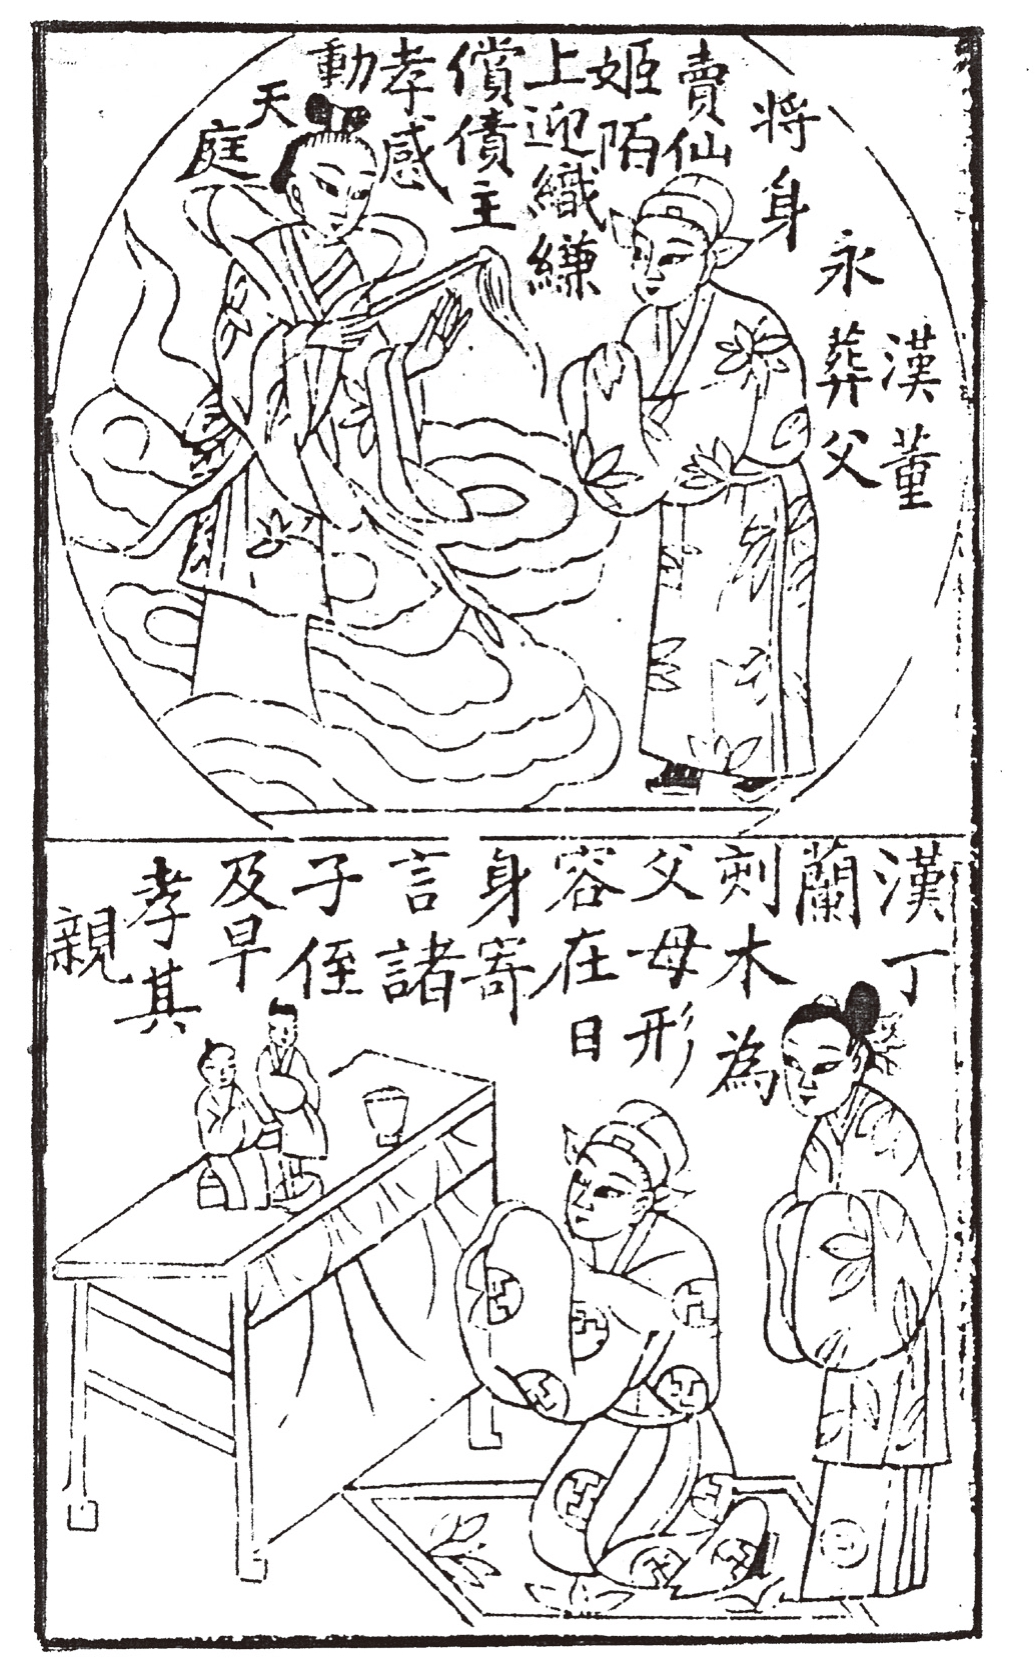 漢董
永葬父
将身
賣仙
姬陌
上迎織縑
償債主
孝感
動
天
庭
漢丁
蘭
刻木為
父母形
容在日
身寄
言諸
子侄
及早
孝其
親